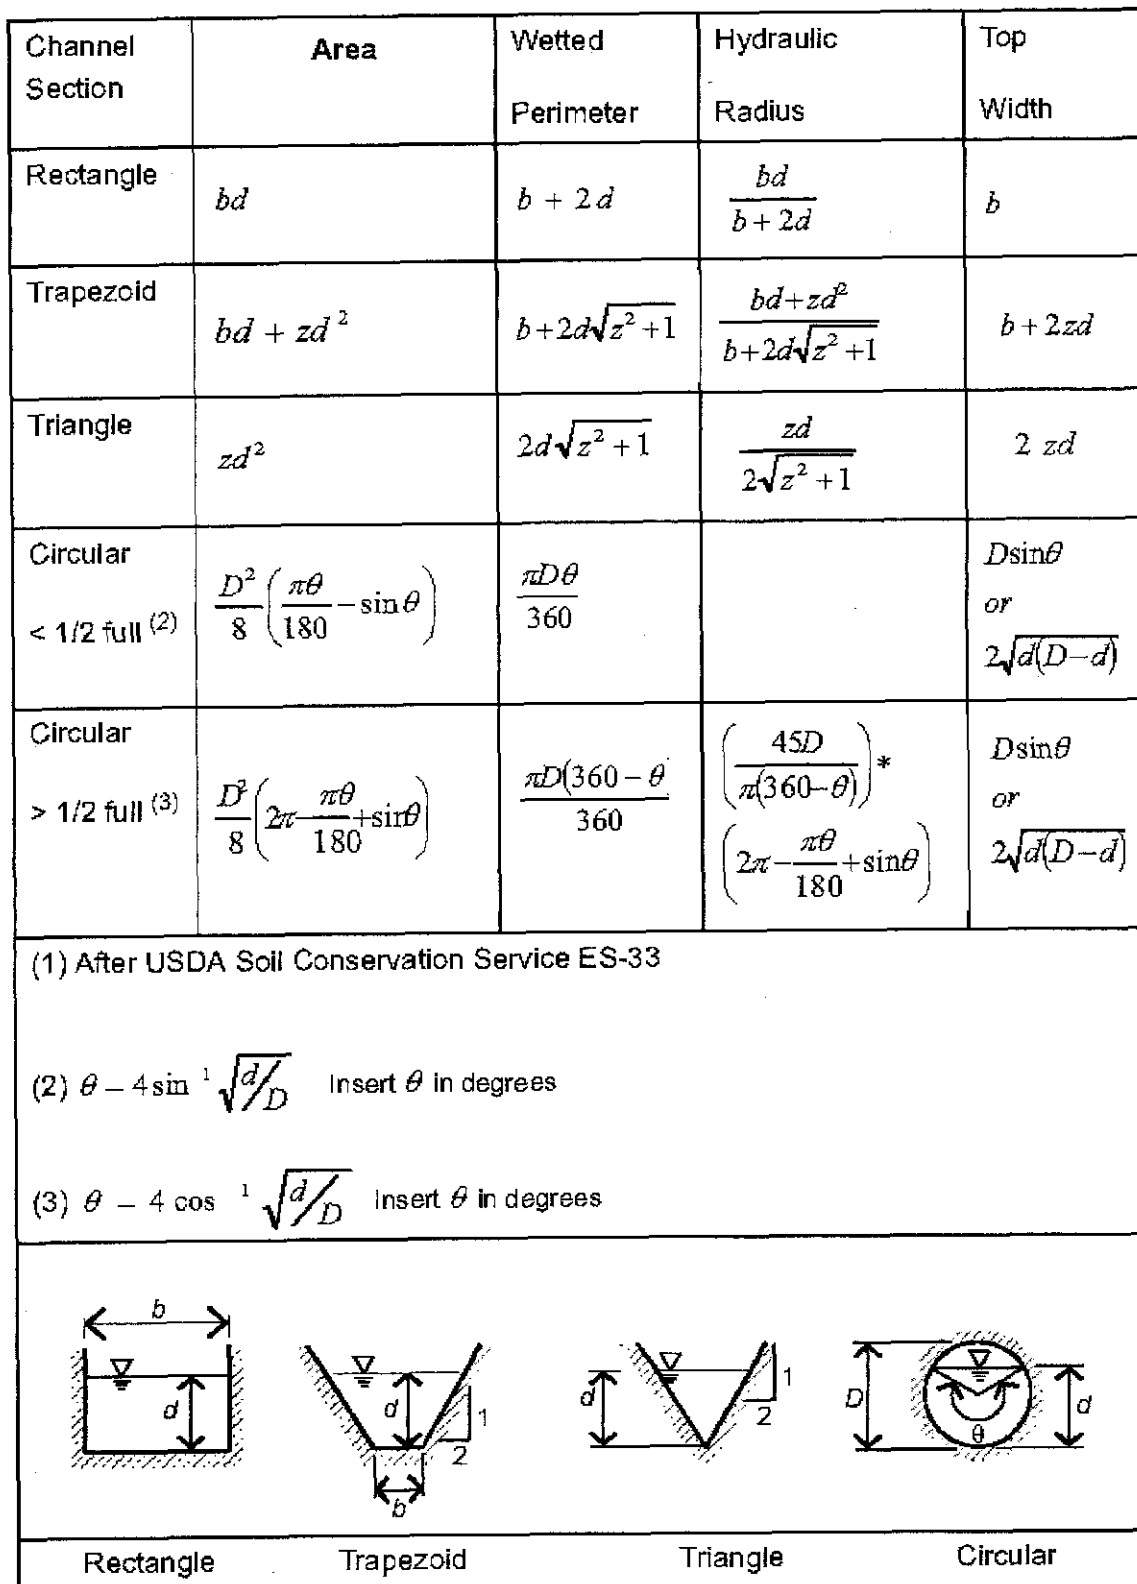 Channel Section | Area | Wetted Perimeter | Hydraulic Radius | Top Width
Rectangle | bd | b + 2d | \frac{bd}{b+2d} | b
Trapezoid | bd + zd^2 | b+2d\sqrt{z^2+1} | \frac{bd+zd^2}{b+2d\sqrt{z^2+1}} | b+2zd
Triangle | zd^2 | 2d\sqrt{z^2+1} | \frac{zd}{2\sqrt{z^2+1}} | 2 zd
Circular < 1/2 full (2) | \frac{D^2}{8}\left(\frac{\pi\theta}{180}-\sin\theta\right) | \frac{\pi D\theta}{360} | | D\sin\theta or 2\sqrt{d(D-d)}
Circular > 1/2 full (3) | \frac{D^2}{8}\left(2\pi-\frac{\pi\theta}{180}+\sin\theta\right) | \frac{\pi D(360-\theta}{360} | \left(\frac{45D}{\pi(360-\theta)}\right)* \left(2\pi-\frac{\pi\theta}{180}+\sin\theta\right) | D\sin\theta or 2\sqrt{d(D-d)}
(1) After USDA Soil Conservation Service ES-33
(2) θ – 4 sin ¹ √d/D Insert θ in degrees
(3) θ – 4 cos ¹ √d/D Insert θ in degrees
b
d
d
1
2
b
d
1
2
D
θ
d
Rectangle
Trapezoid
Triangle
Circular